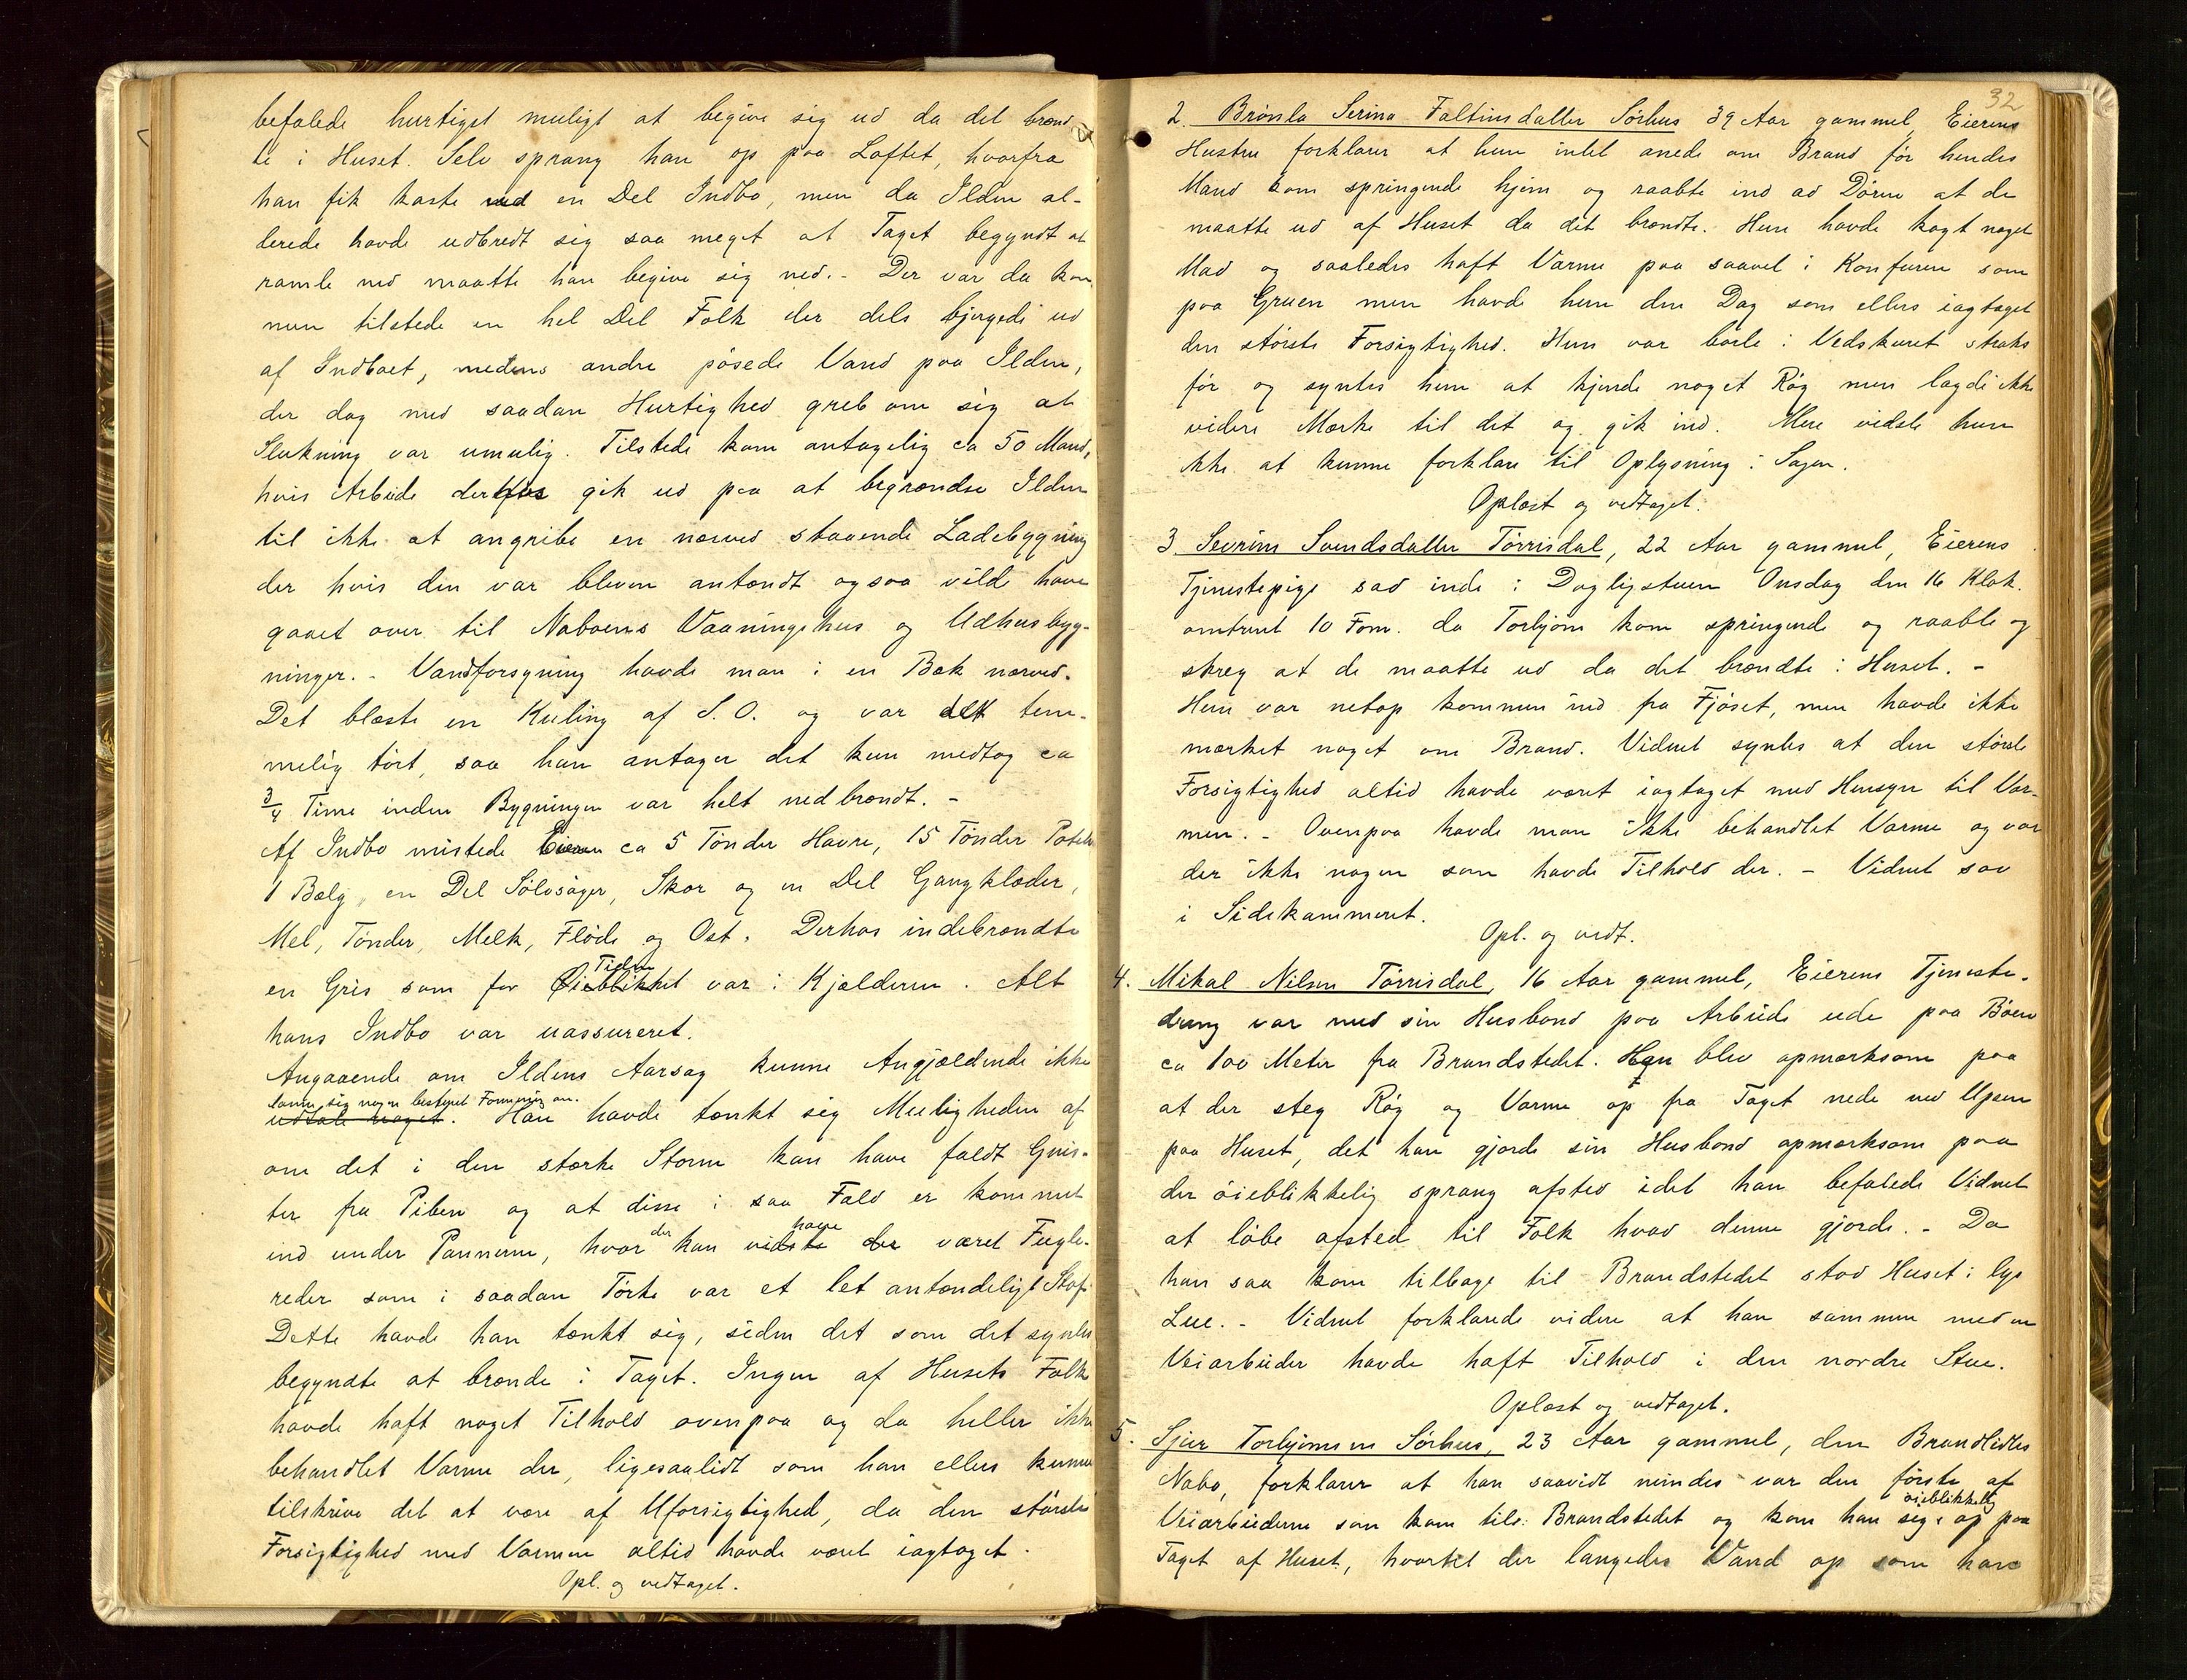 befalede hurtigst muligt at begive sig ud da det brænd
te i Huset. Selv sprang han op paa Loftet, hvorfra
han fik kaste ned en Del Indbo, men da Ilden al-
lerede havde udbredt sig saa meget at Taget begyndt at
ramle ned maatte han begive sig ned. - Der var da kom
men tilstede en hel Del Folk der dels bjergede ud
af Indboet, medens andre pøsede Vand paa Ilden,
der dog med saadan Hurtighed greb om sig at
Slukning var umulig. Tilstede kom antagelig ca 50 Mand,
hvis Arbeide derfor gik ud paa at begrændse Ilden
til ikke at angribe en nærved staaende Ladebygning
der hvis den var bleven antændt ogsaa vilde have
gaaet over til Naboens Vaaningshus og Udhusbyg-
ninger. - Vandforsyning havde man i en Bæk nærved.
Det blæste en Kuling af S.O. og var det tem-
melig tørt, saa han antager det kun medtog ca
3/4 Time inden Bygningen var helt nedbrændt. -
Af Indbo mistede Eieren ca 5 Tønder Havre, 15 Tønder Potet
1 Bælg, en Del Sølvsager, Skor og en Del Gangklæder,
Mel, Tønder, Melk, Fløde og Ost. Derhos indebrændte
en Gris som for Øieblikket Tiden var i Kjælderen. Alt
hans Indbo var uassureret.
Angaaende om Ildens Aarsag kunne Angjældende ikke
danne sig nogen bestemt Formening om.
udtale noget. Han havde tænkt sig Muligheden af
om det i den stærke Storm kan have faldt Gnis-
ter fra Piben og at disse i saa Fald er kommet
ind under Pannerne, hvor der kan vidste have der været Fugle-
reder som i saadan Tørke var et let antændeligt Stof
Dette havde han tænkt sig, siden det som det syntes
begyndte at brænde i Taget. Ingen af Husets Folk
havde haft noget Tilhold ovenpaa og da heller ikke
behandlet Varme der, ligesaalidt som han ellers kunne
tilskrive det at være af Uforsigtighed, da den største
Forsigtighed med Varmen altid havde været iagtaget.
Opl. og vedtaget.
32
2. Brønla Serina Faltinsdatter Sørhus 39 Aar gammel, Eierens
Hustru forklarer at hun intet anede om Brand før hendes
Mand kom springende hjem og raabte ind ad Døren at de
maatte ud af Huset da det brændte. Hun havde kogt noget
Mad og saaledes haft Varme paa saavel i Komfuren som
paa Gruen men havde hun den Dag som ellers iagtaget
den største Forsigtighed. Hun var borte i Vedskuret straks
før og syntes hun at kjende noget Røg men lagde ikke
videre Mærke til det og gik ind. Mere vidste hun
ikke at kunne forklare til Oplysning i Sagen.
Oplæst og vedtaget.
3. Sevrine Svendsdatter Tørrisdal, 22 Aar gammel, Eierens
Tjenestepige sad inde i Dagligstuen Onsdag den 16 Klok.
omtrent 10 Fom. da Torbjørn kom springende og raabte og
skreg at de maatte ud da det brændte i Huset. -
Hun var netop kommen ind fra Fjøset, men havde ikke
mærket noget om Brand. Vidnet syntes at den største
Forsigtighed altid havde været iagtaget med Hensyn til Var-
men. - Ovenpaa havde man ikke behandlet Varme og var
der ikke nogen som havde Tilhold der. - Vidnet sov
i Sidekammeret.
Opl. og vedt.
4. Mikal Nilsen Tørrisdal, 16 Aar gammel, Eierens Tjeneste-
dreng var med sin Husbond paa Arbeide ude paa Bøen
ca 100 Meter fra Brandstedet. Han blev opmærksom paa
at der steg Røg og Varme op fra Taget nede ved Upsen
paa Huset, det han gjorde sin Husbond opmærksom paa
der øieblikkelig sprang afsted idet han befalede Vidnet
at løbe afsted til Folk hvad denne gjorde. - Da
han saa kom tilbage til Brandstedet stod Huset i lys
Lue. - Vidnet forklarede videre at han sammen med en
Veiarbeider havde haft Tilhold i den nordre Stue.
Oplæst og vedtaget.
5. Sjur Torbjørnsen Sørhus, 23 Aar gammel, den Brandlidtes
Nabo, forklarer at han saavidt mindes var den første af
Veiarbeiderne som kom til Brandstedet og kom han sig øieblikkelig op paa
Taget af Huset, hvortil der langedes Vand op som han